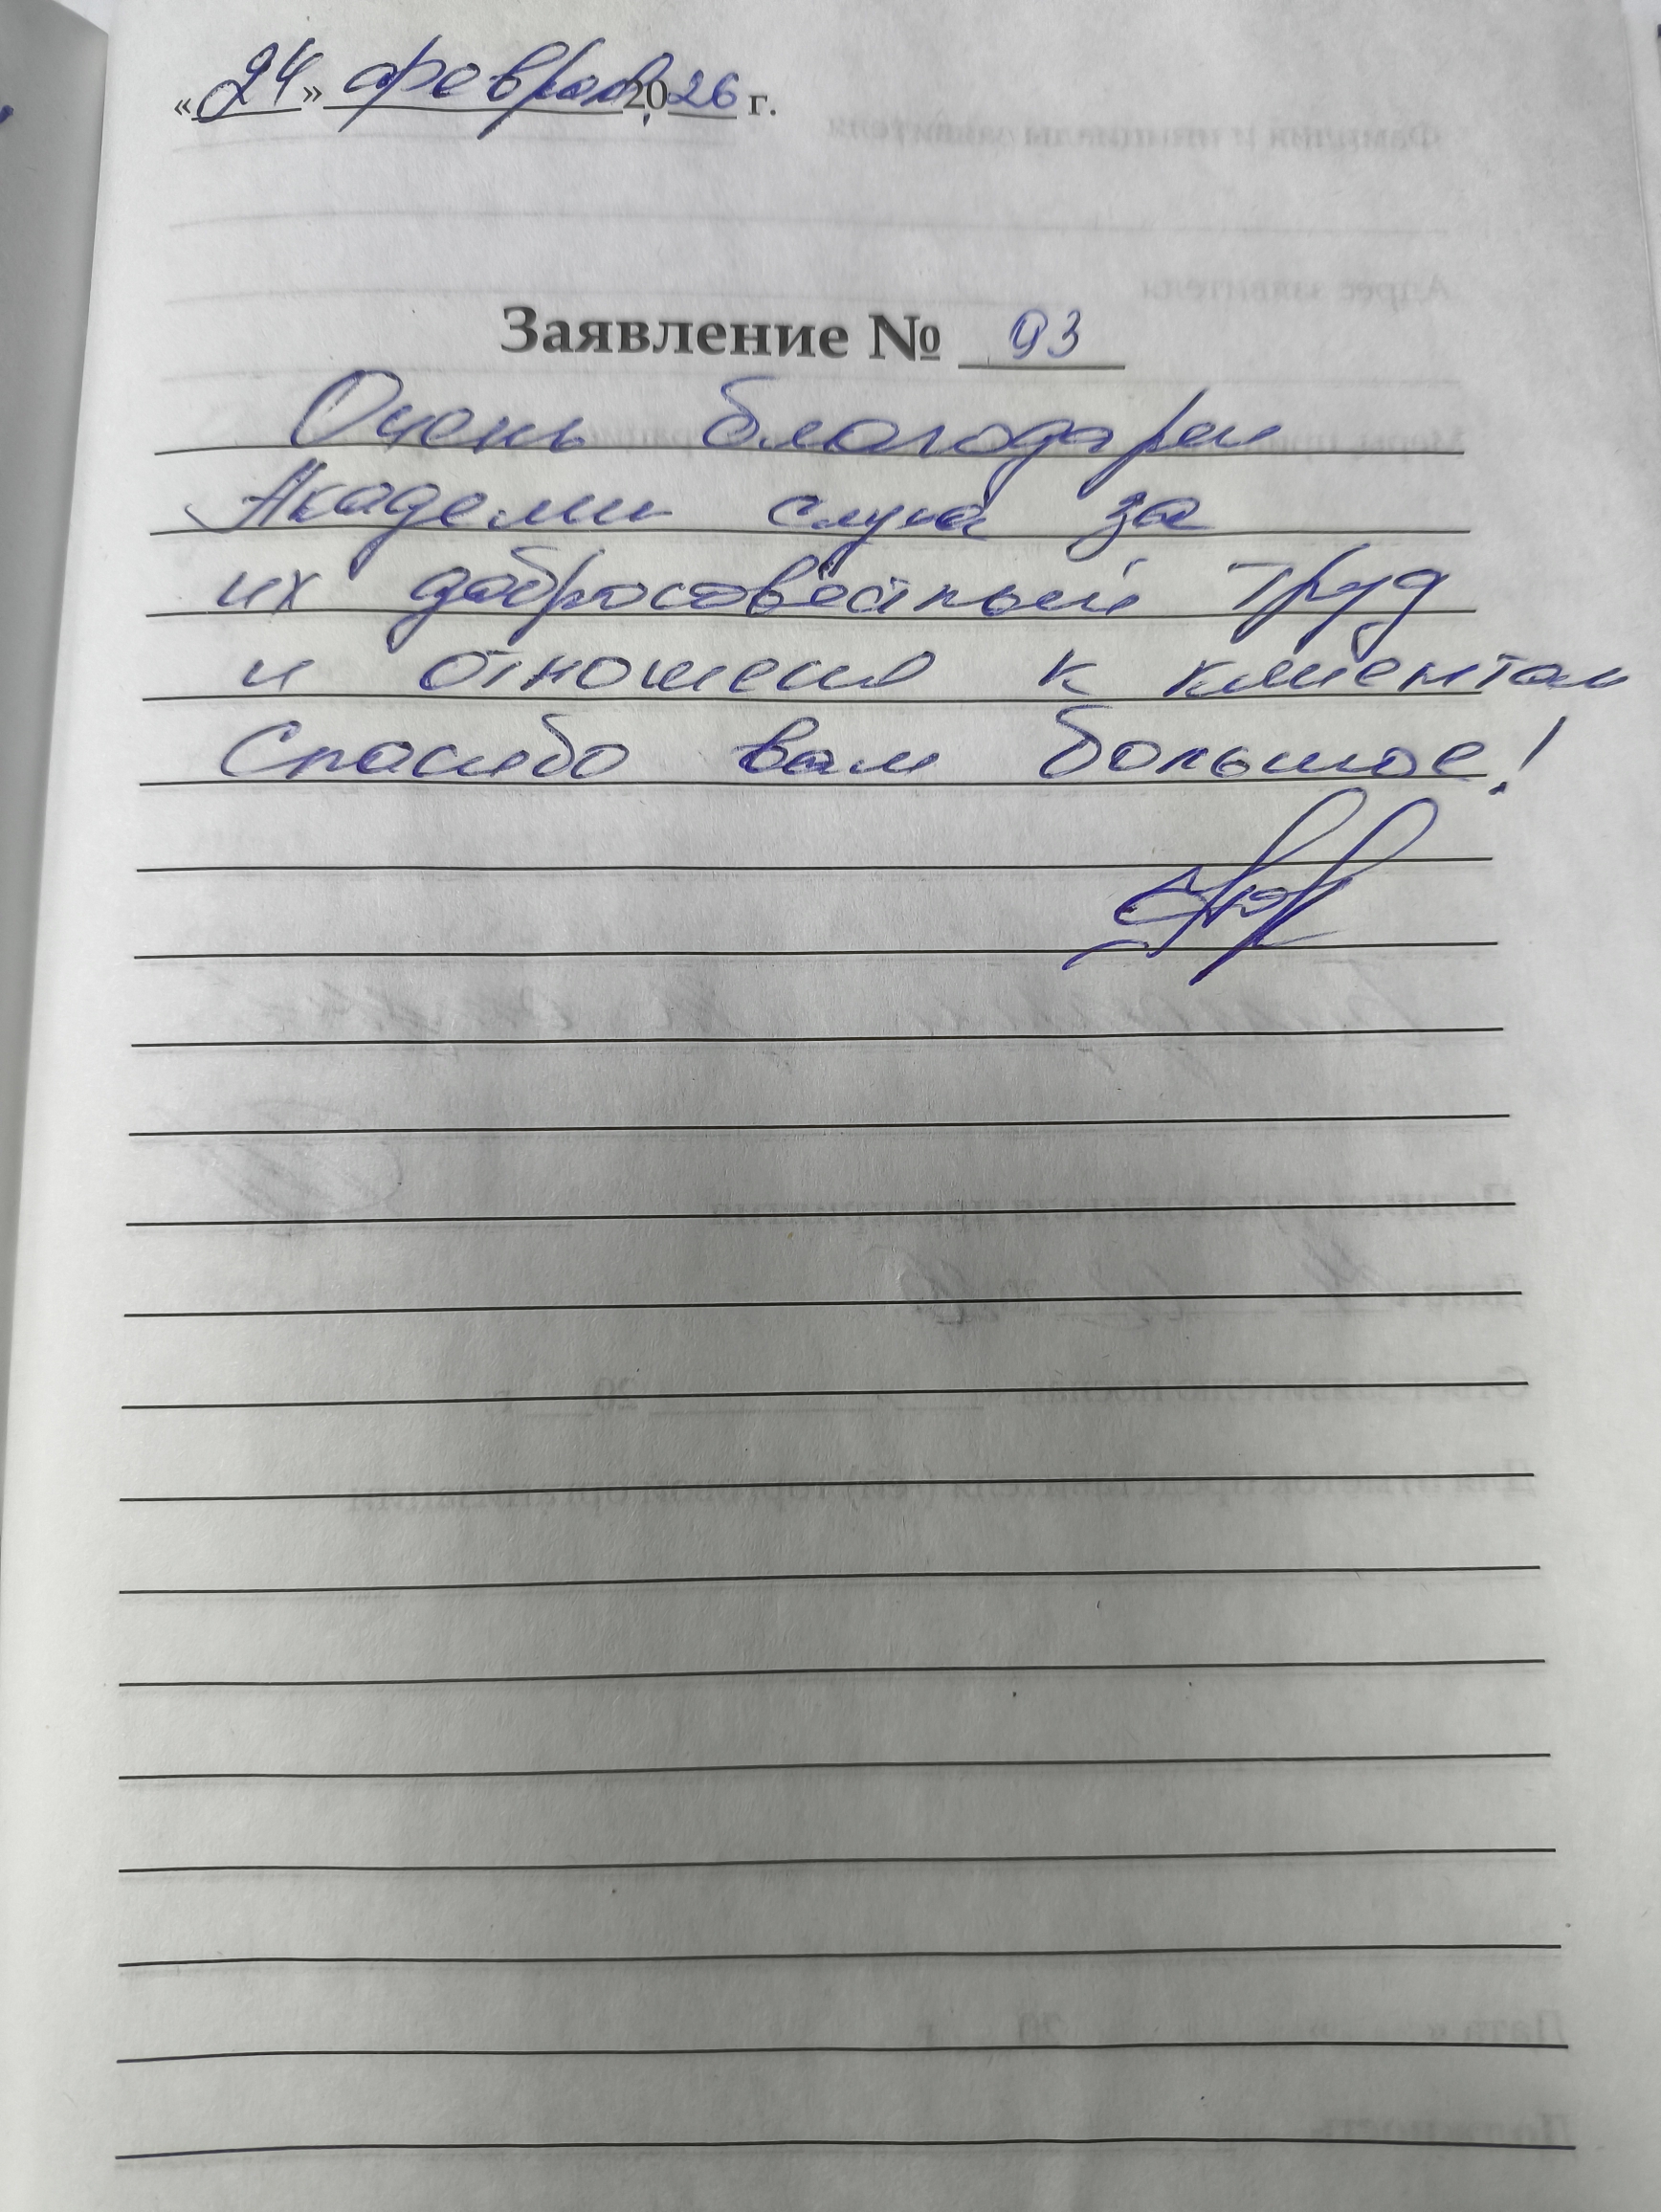 «24» февраля 2026 г.
Заявление № 93
Очень благодарен
Академии слуха за
их добросовестный труд
и отношения к клиентам
Спасибо вам большое!